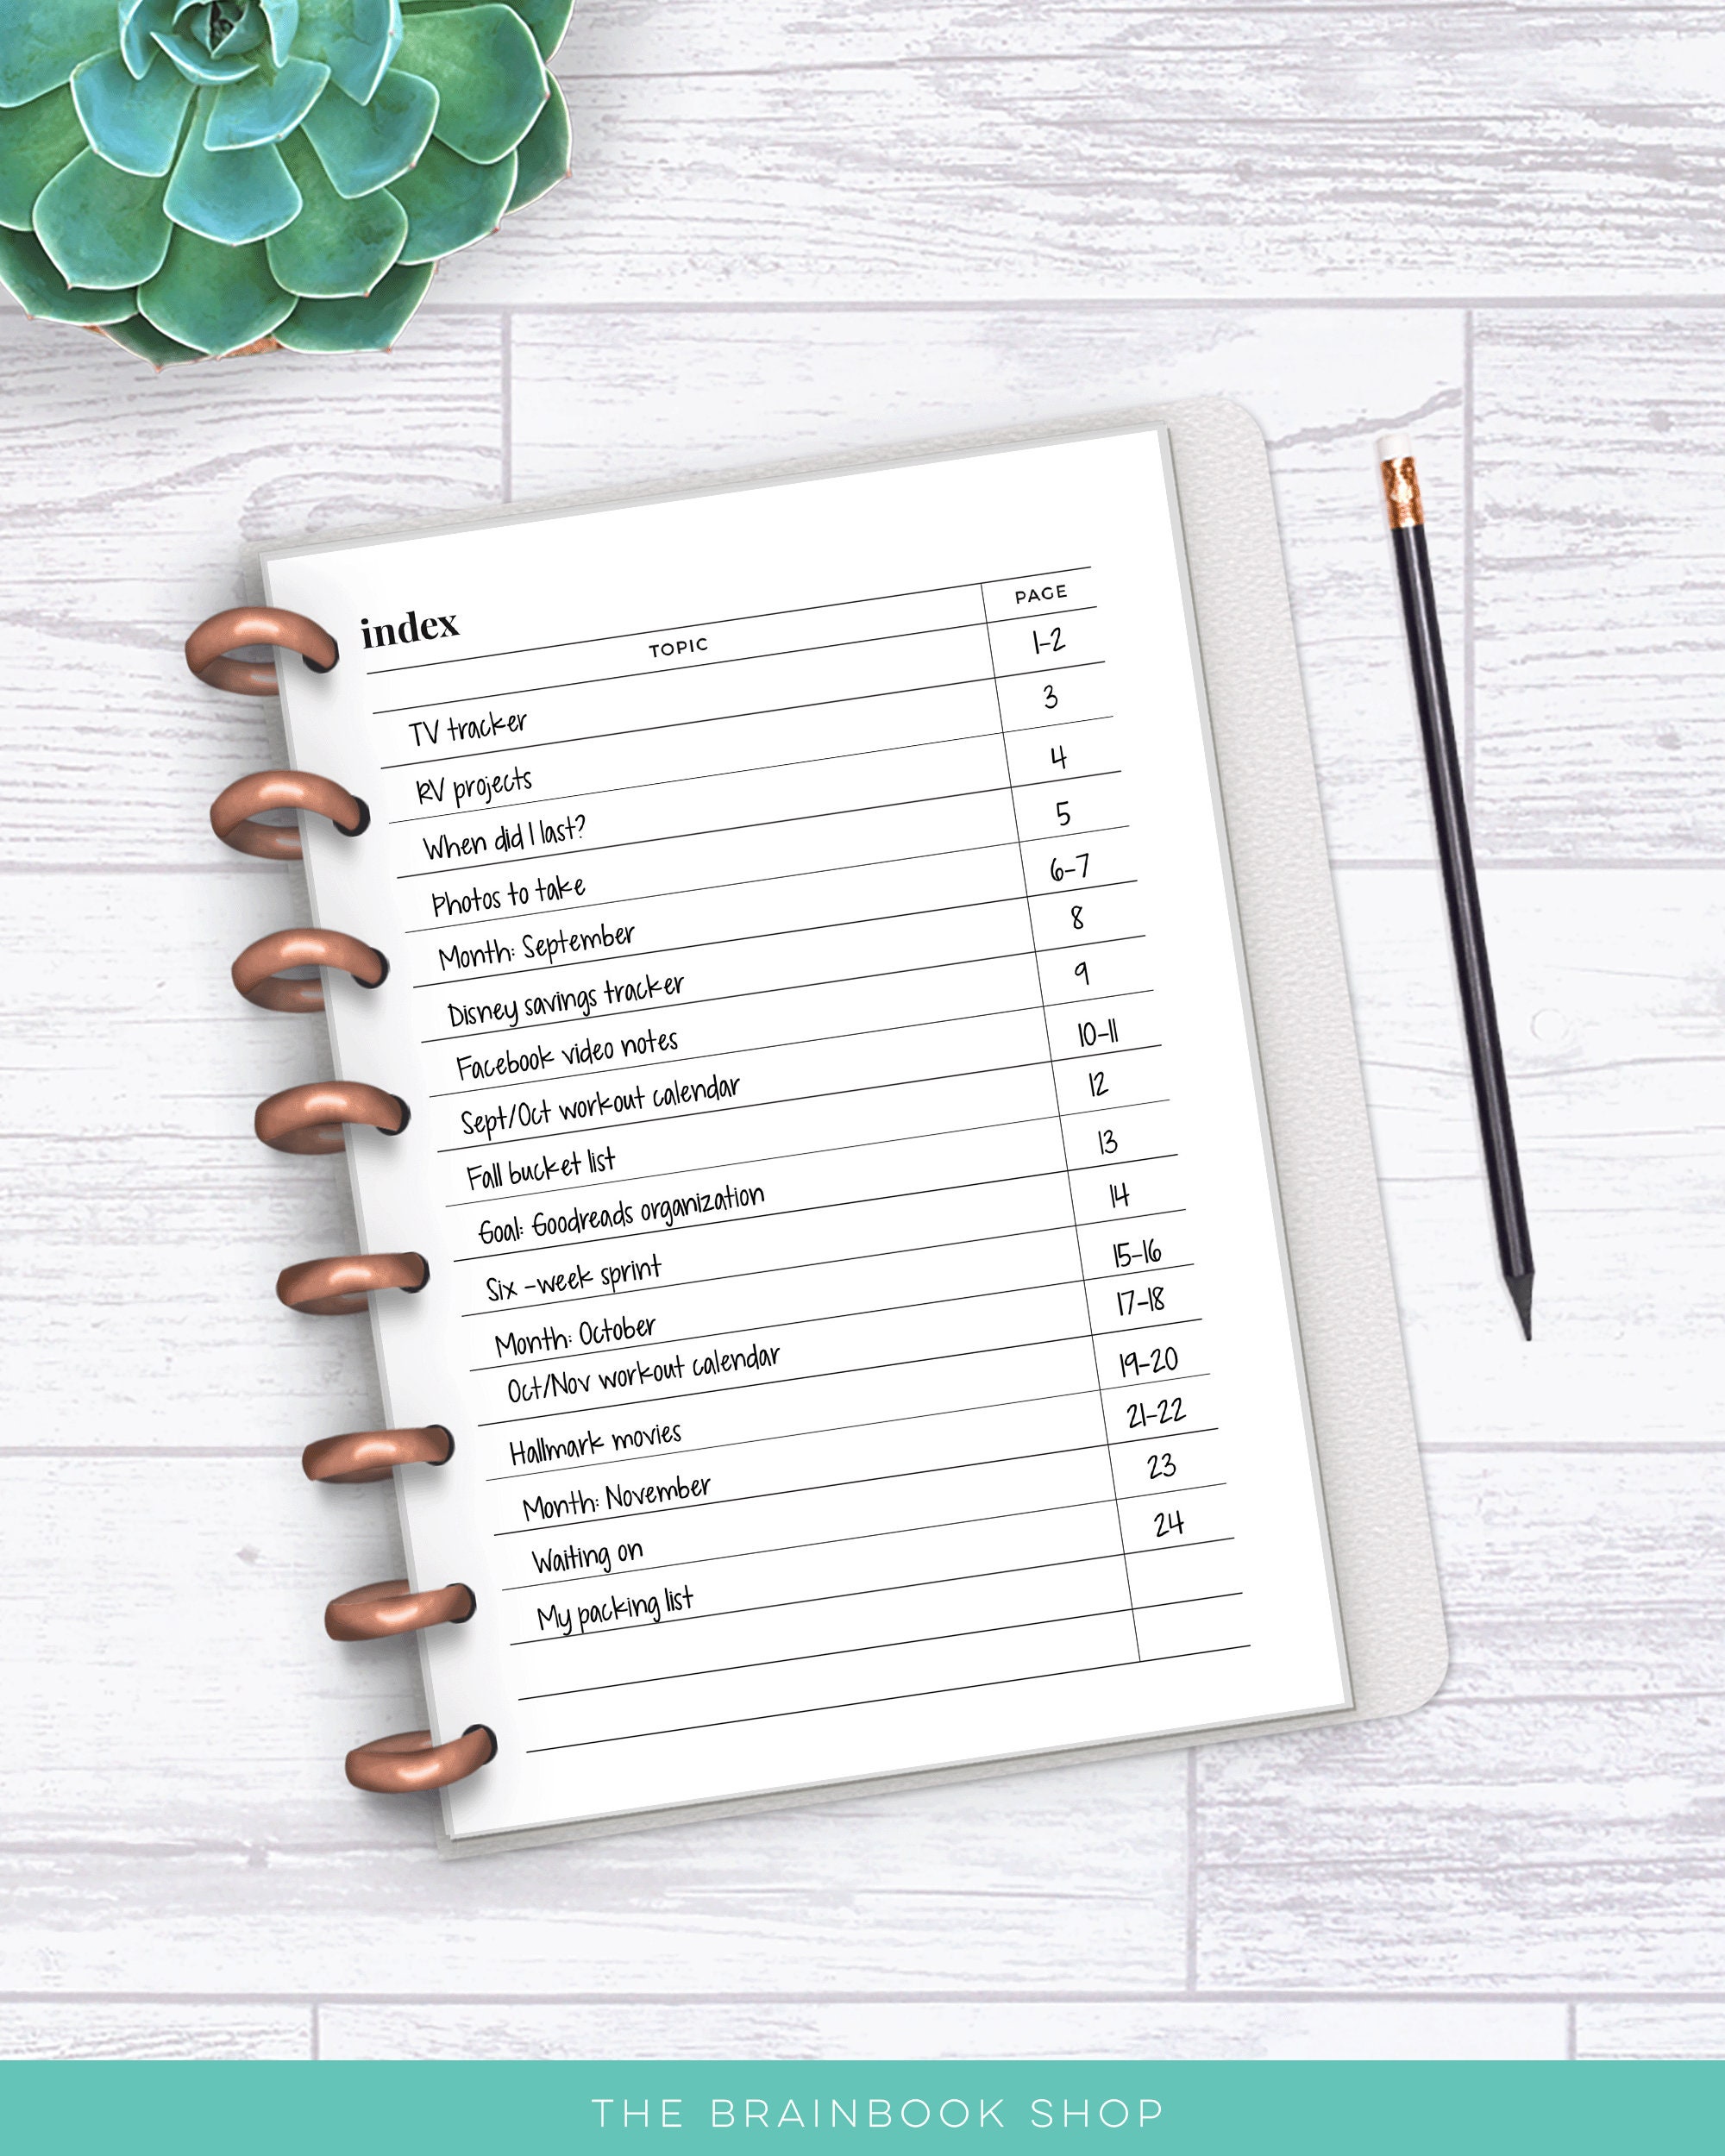 index
TOPIC PAGE
TV tracker 1-2
RV projects 3
When did I last? 4
Photos to take 5
Month: September 6-7
Disney savings tracker 8
Facebook video notes 9
Sept/Oct workout calendar 10-11
Fall bucket list 12
Goal: Goodreads organization 13
Six -week sprint 14
Month: October 15-16
Oct/Nov workout calendar 17-18
Hallmark movies 19-20
Month: November 21-22
Waiting on 23
My packing list 24
THE BRAINBOOK SHOP